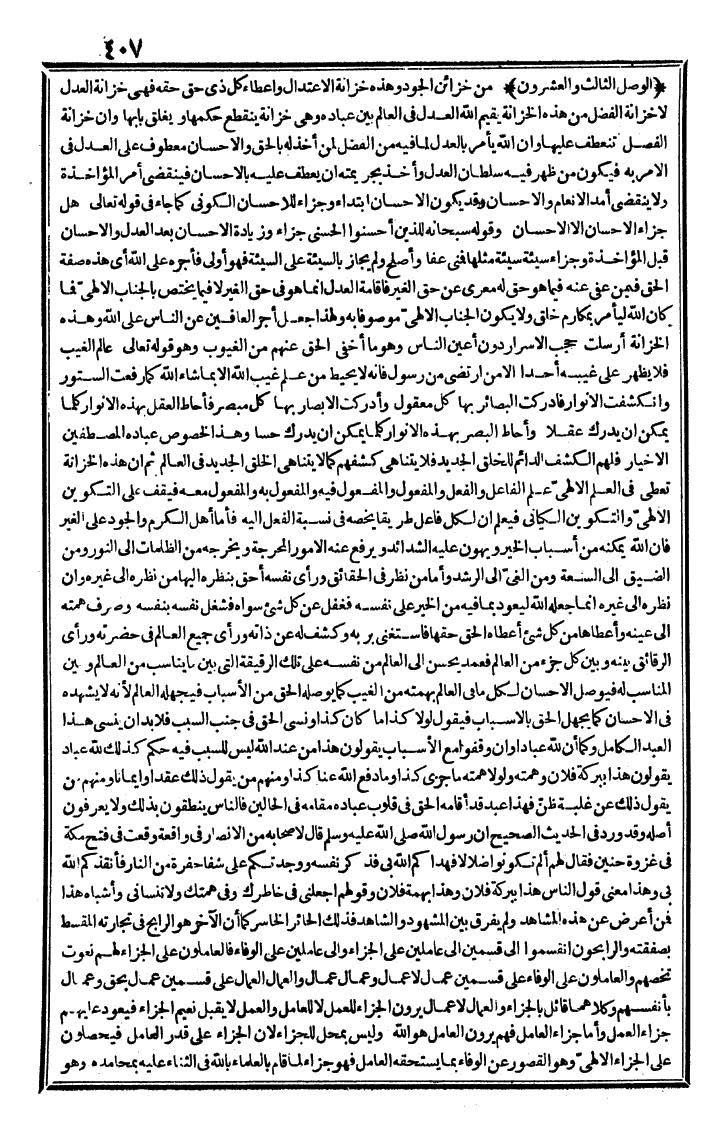 ٤٠٧
﴿الوصل الثالث والعشرون﴾ من خزائن الجود وهذه خزانة الاعتدال واعطاء كل ذى حق حقه فهى خزانة العدل
لا خزانة الفضل من هذه الخزانة يقيم الله العدل فى العالم بين عباده وهى خزانة ينقطع حكمها ويغلق بابها وان خزانة
الفضل تنعطف عليها وان الله يأمر بالعدل لما فيه من الفضل لمن أخذله بالحق والاحسان معطوف على العدل فى
الامر به فيكون من ظهر فيه سلطان العدل وأخذ بجريمته ان يعطف عليه بالاحسان فينقضى أمر المؤاخذة
ولا ينقضى أمد الانعام والاحسان وقد يكون الاحسان ابتداء وجزاء للاحسان الكونى كما جاء فى قوله تعالى هل
جزاء الاحسان الا الاحسان وقوله سبحانه للذين أحسنوا الحسنى جزاء وزيادة الاحسان بعد العدل والاحسان
قبل المؤاخذة وجزاء سيئة سيئة مثلها فمن عفا وأصلح ولم يجاز بالسيئة على السيئة فهو أولى فأجره على الله أى هذه صفة
الحق فيمن عفى عنه فيما هو حق له معرى عن حق الغير فاقامة العدل انما هو فى حق الغير لا فيما يختص بالجناب الالهىّ فما
كان الله ليأمر بمكارم خلق ولا يكون الجناب الالهىّ موصوفا به ولهذا جعل أجر العافين عن الناس على الله وهذه
الخزانة أرسلت حجب الاسرار دون أعين الناس وهو ما أخفى الحق عنهم من الغيوب وهو قوله تعالى عالم الغيب
فلا يظهر على غيبه أحدا الا من ارتضى من رسول فانه لا يحيط من علم غيب الله الا بما شاء الله كما رفعت الستور
وانكشفت الانوار فادركت البصائر بها كل معقول وأدركت الابصار بها كل مبصر فأحاط العقل بهذه الانوار كلما
يمكن ان يدرك عقلا وأحاط البصر بهذه الانوار كلما يمكن ان يدرك حسا وهذا لخصوص عباده المصطفين
الاخيار فلهم الكشف الدائم للخلق الجديد فلا يتناهى كشفهم كما لا يتناهى الخلق الجديد فى العالم ثم ان هذه الخزانة
تعطى فى العلم الالهىّ علم الفاعل والفعل والمفعول والمفعول فيه والمفعول به والمفعول معه فيقف على التكوين
الالهىّ والتكوين الكيانى فيعلم ان لكل فاعل طريقا يخصه فى نسبة الفعل اليه فأما أهل الكرم والجود على الغير
فان الله يمكنه من أسباب الخير ويهون عليه الشدائد ويرفع عنه الامور المحرجة ويخرجه من الظلمات الى النور ومن
الضيق الى السعة ومن الغىّ الى الرشد وأما من نظر فى الحقائق ورأى نفسه أحق بنظره اليها من نظره الى غيره وان
نظره الى غيره انما جعله الله ليعود بما فيه من الخير على نفسه فغفل عن كل شئ سواه فشغل نفسه بنفسه وصرف همته
الى عينه وأعطاها من كل شئ أعطاه الحق حقها فاستغنى بربه وكشف له عن ذاته ورأى جميع العالم فى حضرته ورأى
الرقائق بينه وبين كل جزء من العالم فعمد يحسن الى العالم من نفسه على تلك الرقيقة التى بين ما يناسب من العالم وبين
المناسب له فيوصل الاحسان لكل ما فى العالم بهمته من الغيب كما يوصله الحق من الأسباب فيجهله العالم لأنه لا يشهده
فى الاحسان كما يجهل الحق بالاسباب فيقول لولا كذا ما كان كذا ونسى الحق فى جنب السبب فلا بد ان ينسى هذا
العبد الكامل وكما أن لله عبادا وان وقفوا مع الأسباب يقولون هذا من عند الله ليس للسبب فيه حكم كذلك لله عباد
يقولون هذا ببركة فلان وهمته ولولا همته ما جرى كذا وما دفع الله عنا كذا ومنهم من يقول ذلك عقدا وايمانا ومنهم من
يقول ذلك عن غلبة ظنّ فهذا عبد قد أقامه الحق فى قلوب عباده مقامه فى الحالين فالناس ينطقون بذلك ولا يعرفون
أصله وقد ورد فى الحديث الصحيح ان رسول الله صلى الله عليه وسلم قال لاصحابه من الانصار فى واقعة وقعت فى فتح مكة
فى غزوة حنين فقال لهم ألم تكونوا ضلالا فهداكم الله بى فذكر نفسه ووجدتكم على شفا حفرة من النار فأنقذكم الله
بى وهذا معنى قول الناس هذا ببركة فلان وهذا بهمة فلان وقولهم اجعلنى فى خاطرك وفى همتك ولا تنسانى وأشباه هذا
فمن أعرض عن هذه المشاهد ولم يفرق بين المشهود والشاهد فذلك الحائر الخاسر كما أن الآخر هو الرابح فى تجارته المقسط
بصفقته والرابحون انقسموا الى قسمين الى عاملين على الجزاء والى عاملين على الوفاء فالعاملون على الجزاء لهم نعوت
تخصهم والعاملون على الوفاء على قسمين عمال لا عمال وعمال عمال والعمال العمال على قسمين عمال بحق وعمال
بأنفسهم وكلاهما قائل بالجزاء والعمال لا عمال يرون الجزاء للعمل لا للعامل والعمل لا يقبل نعيم الجزاء فيعود عليهم
جزاء العمل وأما جزاء العامل فهم يرون العامل هو الله وليس بمحل للجزاء لان الجزاء على قدر العامل فيحصلون
على الجزاء الالهىّ وهو القصور عن الوفاء بما يستحقه العامل فهو جزاء لما قام بالعلماء بالله فى الثناء عليه بمحامده وهو